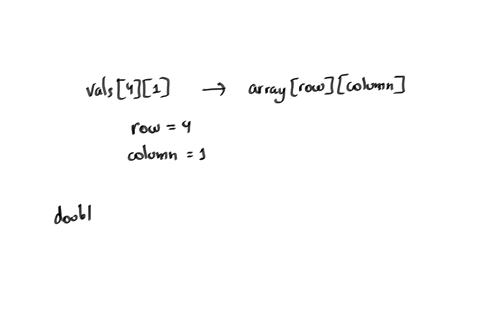 vals[4][1] → array[row][column]
row = 4
column = 1
doubl